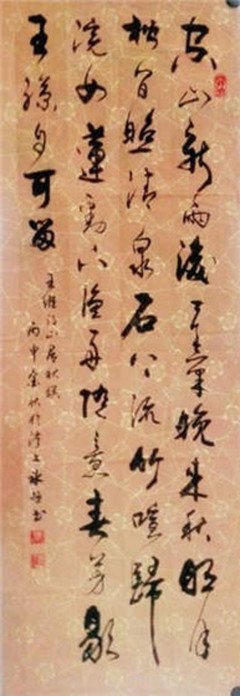 空山新雨後天氣晚來秋明月
松間照清泉石上流竹喧歸
浣女蓮動下漁舟隨意春芳歇
王孫自可留
王維詩山居秋暝
丙申金秋於上書